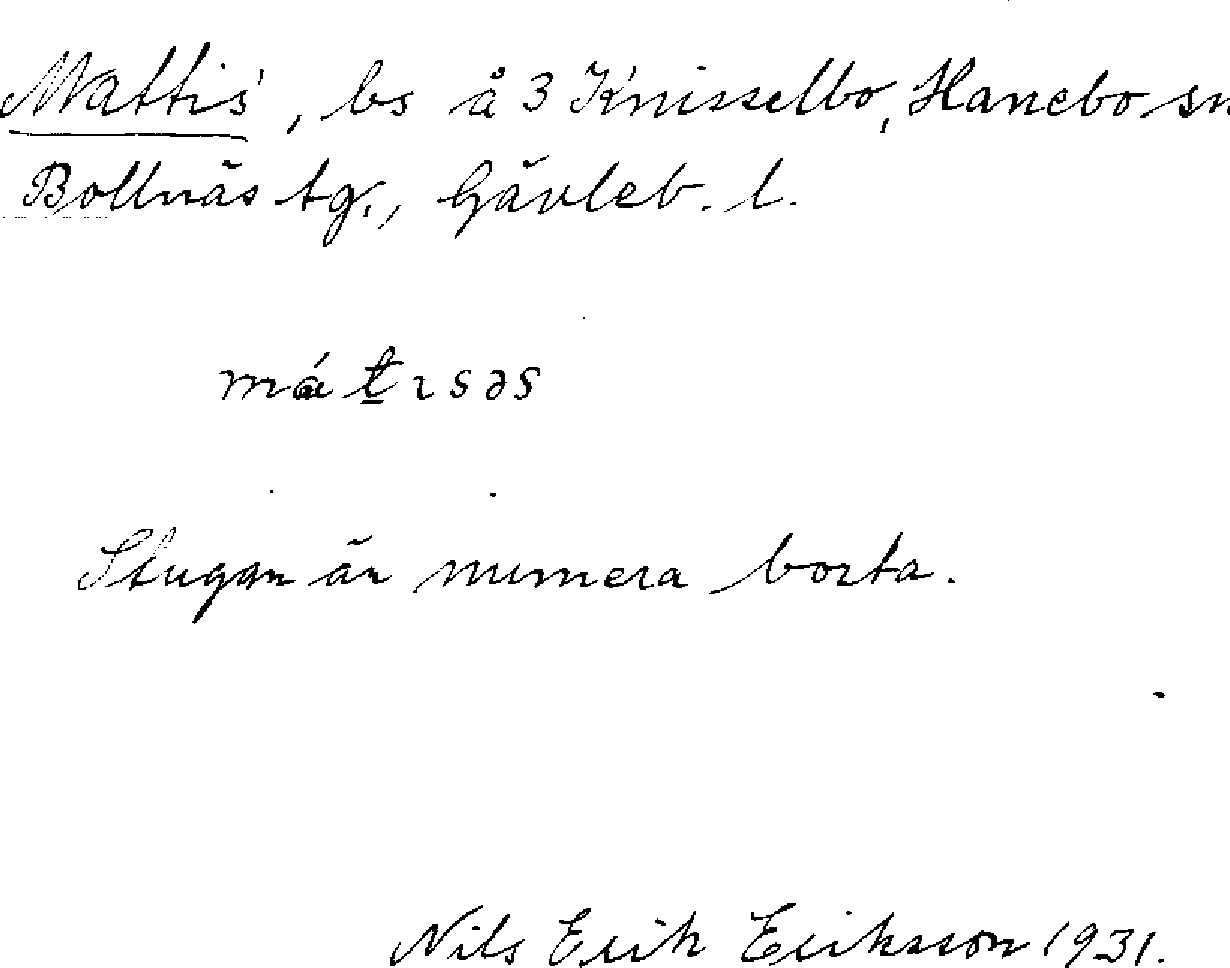 Mattis', bs å 3 Knisselbo, Hanebo sn
Bollnäs tg., Gävleb. l.
má̱tısəs
Stugan är numera borta.
Nils Erik Eriksson 1931.